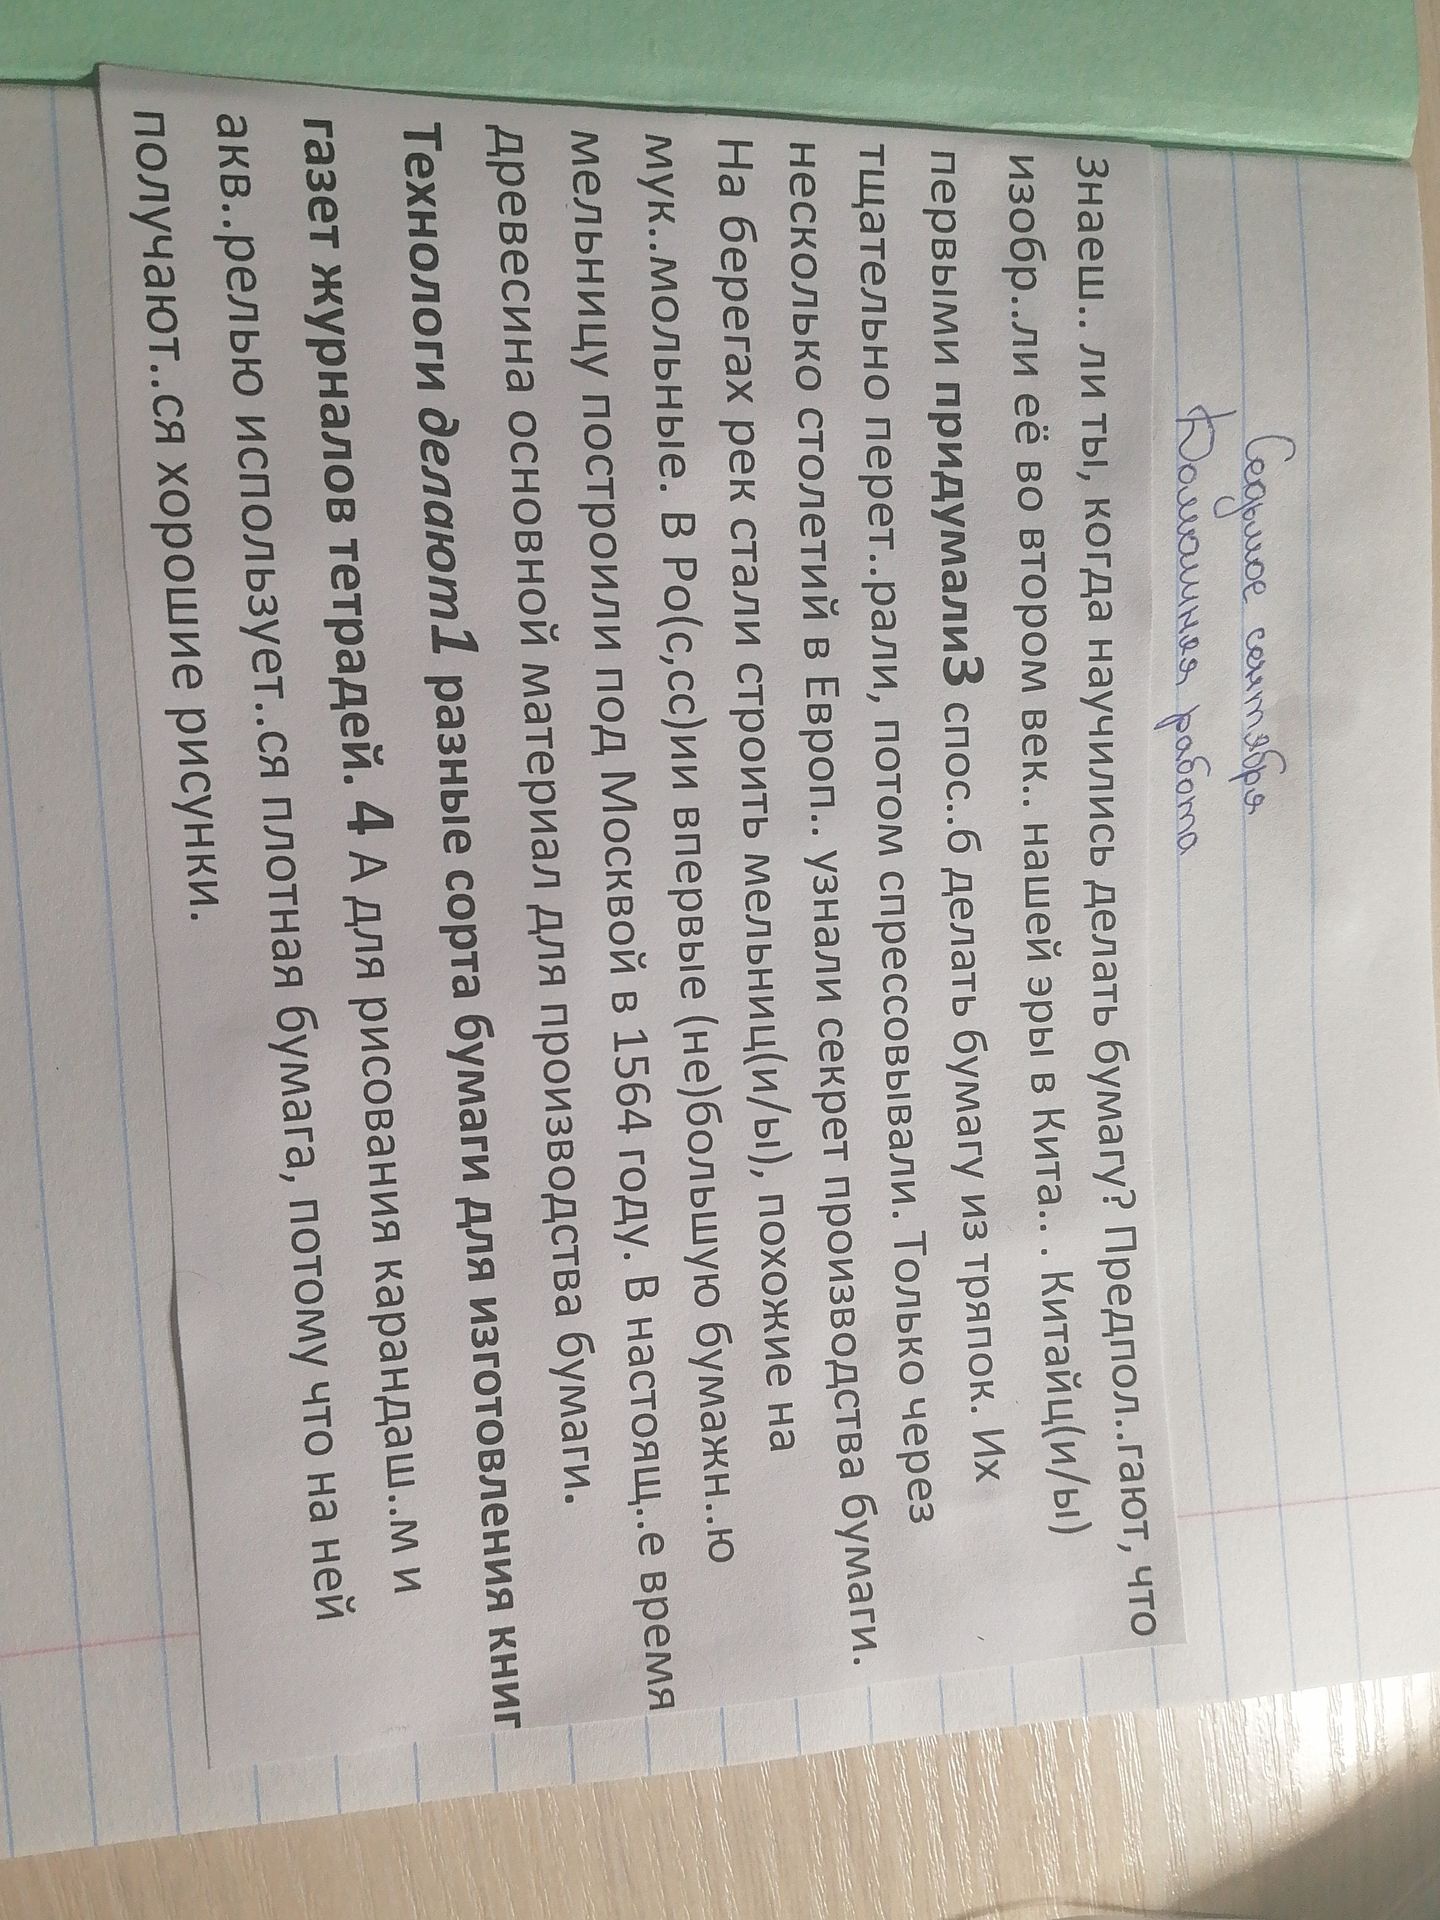 Седьмое сентября
Домашняя работа
Знаеш.. ли ты, когда научились делать бумагу? Предпол..гают, что
изобр..ли её во втором век.. нашей эры в Кита.. . Китайц(и/ы)
первыми придумали3 спос..б делать бумагу из тряпок. Их
тщательно перет..рали, потом спрессовывали. Только через
несколько столетий в Европ.. узнали секрет производства бумаги.
На берегах рек стали строить мельниц(и/ы), похожие на
мук..мольные. В Ро(с,сс)ии впервые (не)большую бумажн..ю
мельницу построили под Москвой в 1564 году. В настоящ..е время
древесина основной материал для производства бумаги.
Технологи делают1 разные сорта бумаги для изготовления книг
газет журналов тетрадей. 4 А для рисования карандаш..м и
акв..релью использует..ся плотная бумага, потому что на ней
получают..ся хорошие рисунки.